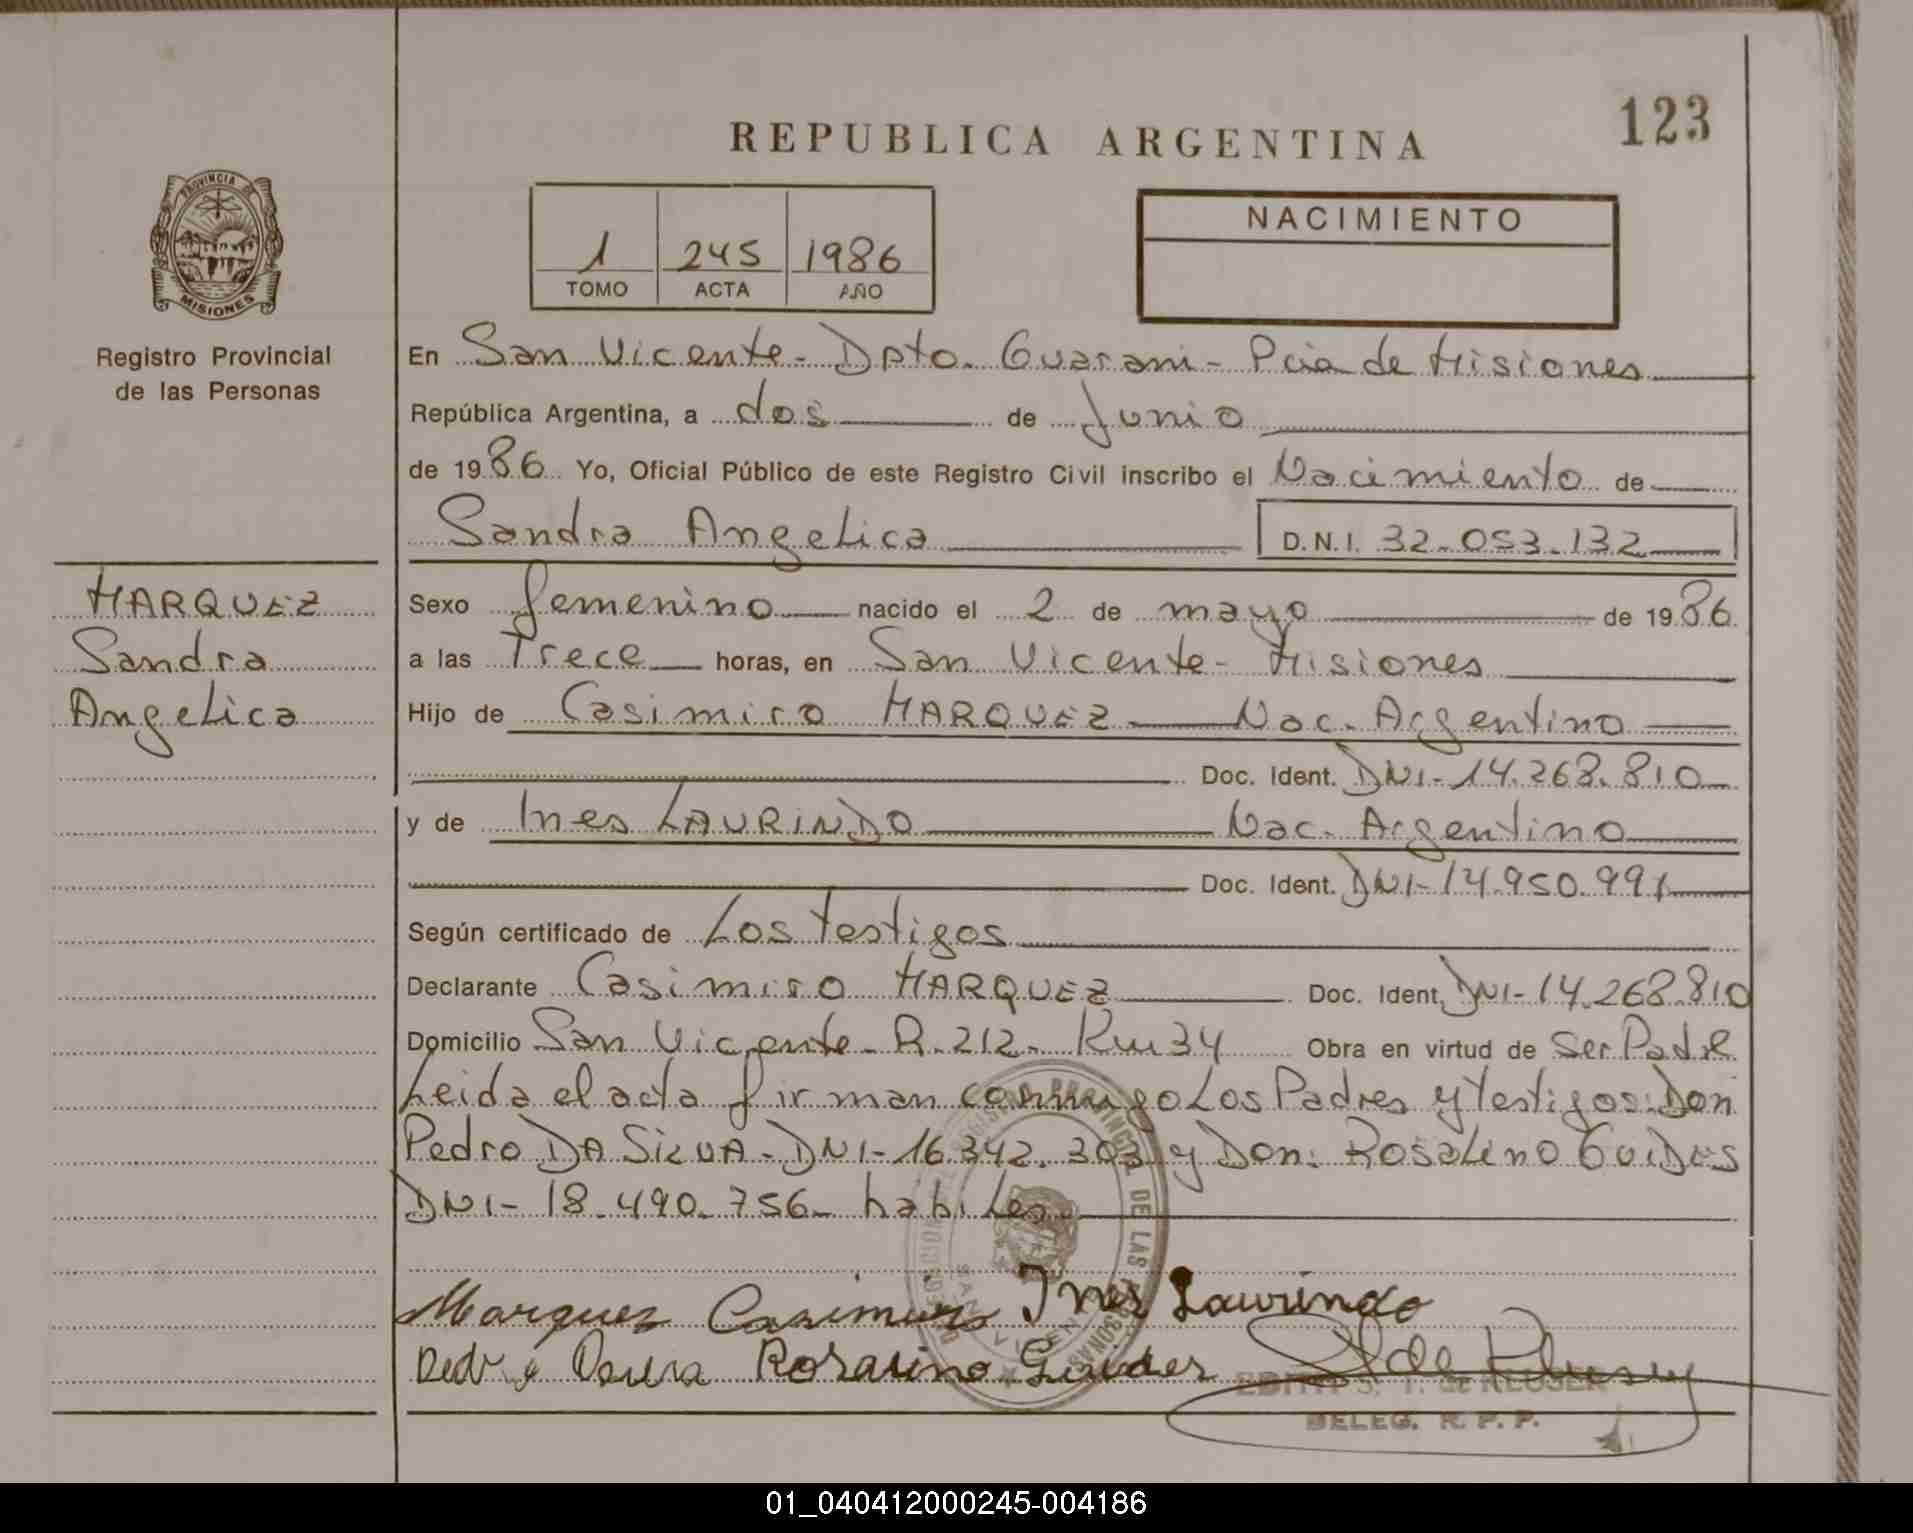 123
REPUBLICA ARGENTINA
PROVINCIA DE
MISIONES
Registro Provincial
de las Personas
1 245 1986
TOMO ACTA AÑO
NACIMIENTO
En San Vicente - Dpto. Guarani - Pcia de Misiones
República Argentina, a dos de Junio
de 1986 Yo, Oficial Público de este Registro Civil inscribo el Nacimiento de
Sandra Angelica D.N.I. 32.053.132
MARQUEZ
Sandra
Angelica
Sexo femenino nacido el 2 de mayo de 1986
a las Trece horas, en San Vicente - Misiones
Hijo de Casimiro MARQUEZ Nac. Argentino
Doc. Ident. DNI-14.268.810
y de Ines LAURINDO Nac. Argentino
Doc. Ident. DNI-14.950.991
Según certificado de Los Testigos
Declarante Casimiro MARQUEZ Doc. Ident. DNI-14.268.810
Domicilio San Vicente - R.212 - Km 34 Obra en virtud de Ser Padre
Leida el acta firman conmigo Los Padres y Testigos: Don
Pedro DA SILVA - DNI - 16.342.303 y Don: Rosalino GuiDES
DNI - 18.490.756 - habiles
Marquez Casimiro Ines Laurindo
Rosalino Guides
DELEG. R. P. P.
01_040412000245-004186